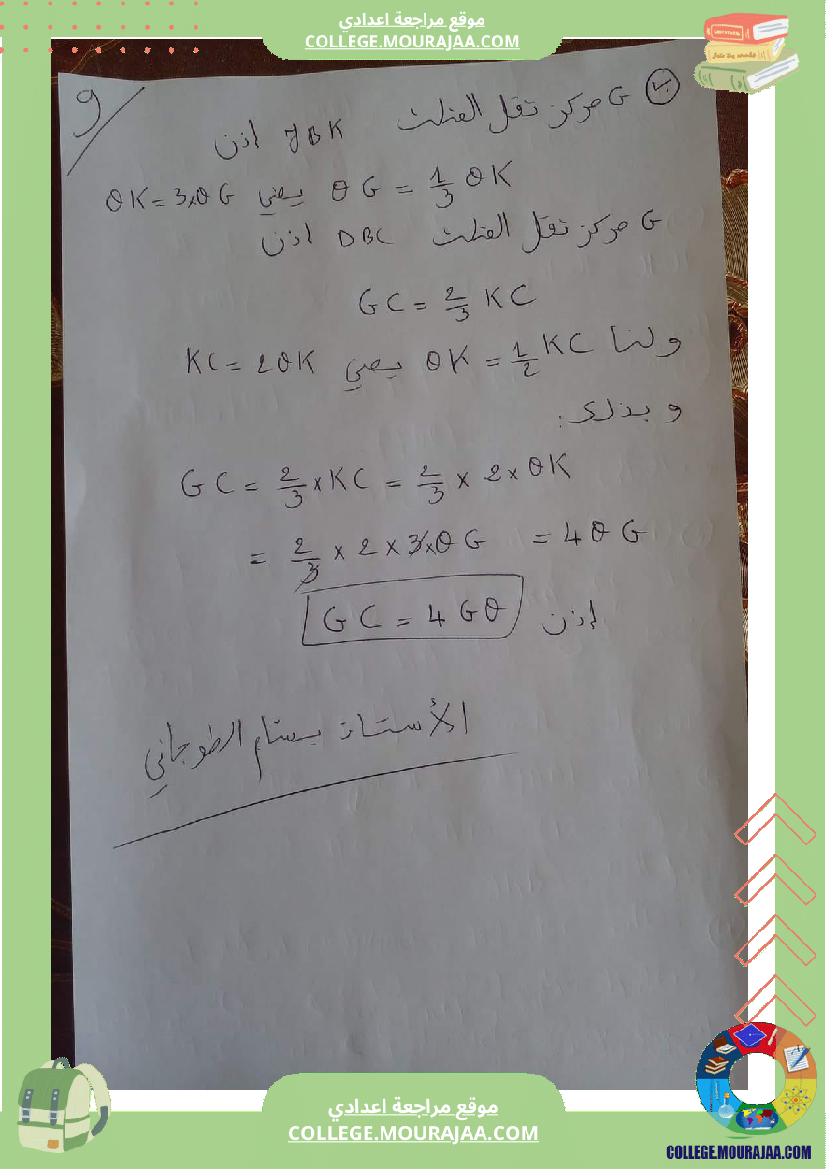 موقع مراجعة اعدادي
COLLEGE.MOURAJAA.COM
9
ب) G مركز ثقل المثلث JBK اذن
OG = 1/3 OK يعني OK = 3×OG
G مركز ثقل المثلث DBC اذن
GC = 2/3 KC
ولنا OK = 1/2 KC يعني KC = 2OK
وبذلك:
GC = 2/3 × KC = 2/3 × 2 × OK
= 2/3 × 2 × 3×OG = 4OG
إذن GC = 4GO
الأستاذ بسام الطوجاني
موقع مراجعة اعدادي
COLLEGE.MOURAJAA.COM
COLLEGE.MOURAJAA.COM